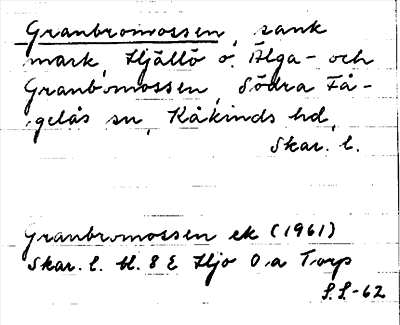 Granbromossen, sank
mark, Hjällö o. Älga- och
Granbomossen, Södra Få-
gelås sn, Kåkinds hd,
Skar. l.
Granbromossen ek (1961)
Skar. l. bl. 8 E Hjo 0 a Torp
S.L-62